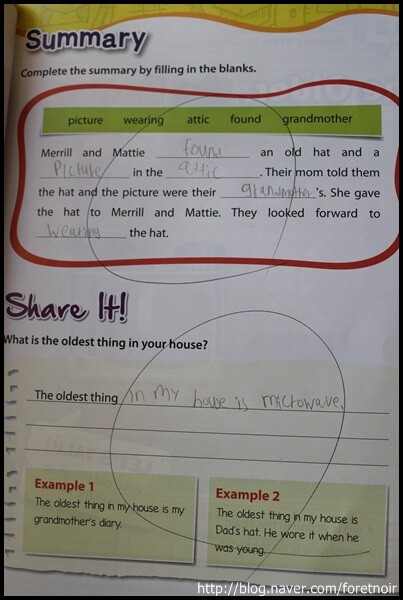 Summary
Complete the summary by filling in the blanks.
picture wearing attic found grandmother
Merrill and Mattie found an old hat and a
Picture in the attic. Their mom told them
the hat and the picture were their grandmother's. She gave
the hat to Merrill and Mattie. They looked forward to
wearing the hat.
Share It!
What is the oldest thing in your house?
The oldest thing in my house is microwave.
Example 1
The oldest thing in my house is my
grandmother's diary.
Example 2
The oldest thing in my house is
Dad's hat. He wore it when he
was young.
http://blog.naver.com/foretnoir